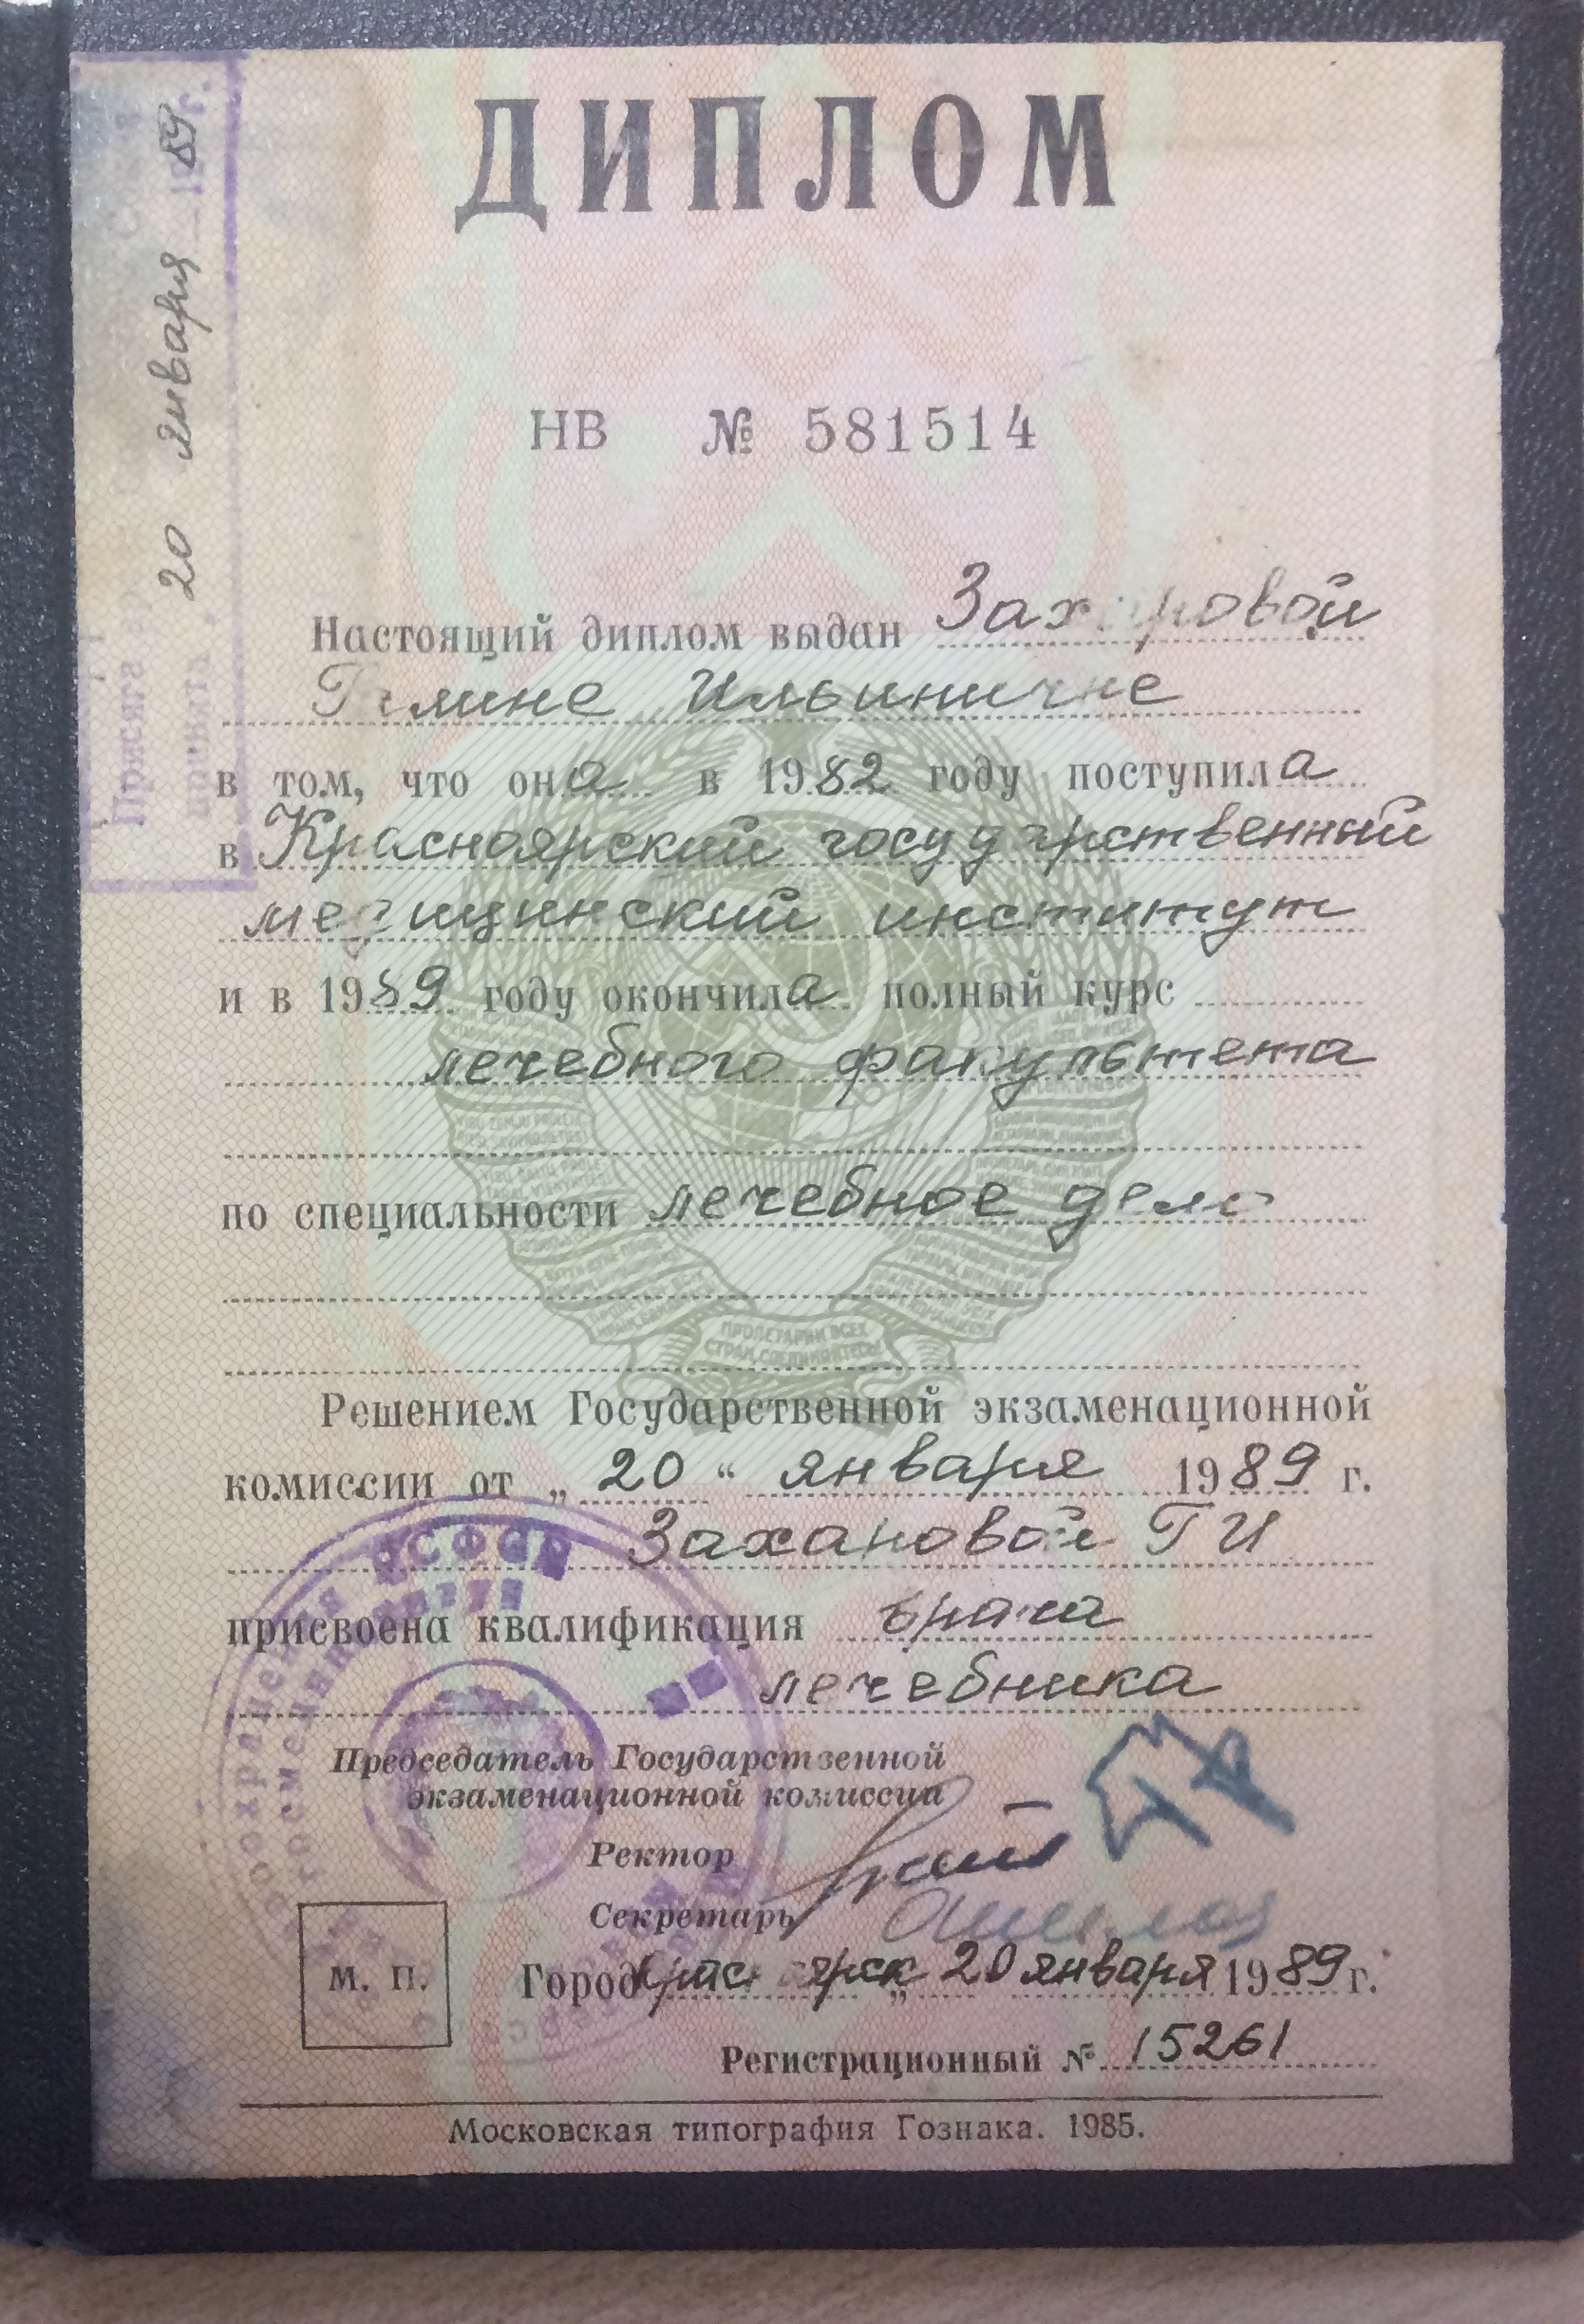 ДИПЛОМ
НВ № 581514
Настоящий диплом выдан Захаровой
Галине Ильиничне
в том, что она в 1982 году поступила
в Красноярский государственный
медицинский институт
и в 1989 году окончила полный курс
лечебного факультета
по специальности лечебное дело
ПРОЛЕТАРИИ ВСЕХ
СТРАН, СОЕДИНЯЙТЕСЬ!
Решением Государственной экзаменационной
комиссии от „20“ января 1989 г.
Захаровой Г И
присвоена квалификация врача
лечебника
Председатель Государственной
экзаменационной комиссии
Ректор
Секретарь
М. П.
Город Красноярск „20 января 1989 г.
Регистрационный № 15261
Московская типография Гознака. 1985.
Присяга
принята 20 января 1989 г.
РСФСР